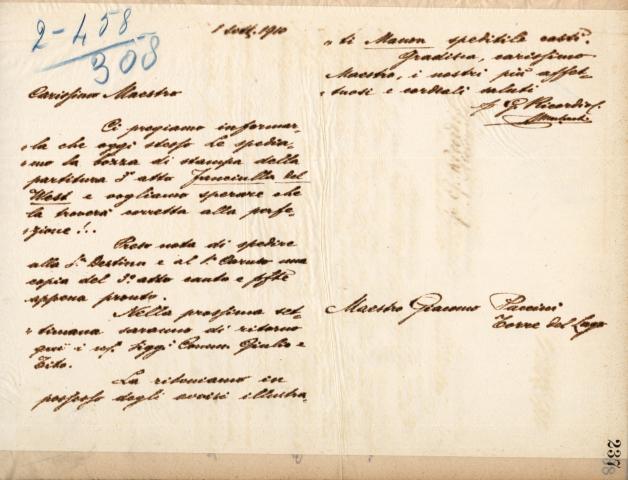 2-458
308
1 sett. 1910
Carissimo Maestro
Ci pregiamo informar-
la che oggi stesso Le spedia-
mo la bozza di stampa della
partitura 3° atto Fanciulla del
West e vogliamo sperare che
la troverà corretta alla perfe-
zione!..
Preso nota di spedire
alla Sa. Destinn e al Sr. Caruso una
copia del 3° atto canto e pfte
appena pronto.
Nella prossima set-
timana saranno di ritorno
qui i Sigg. Comm. Giulio e
Tito.
La riteniamo in
possesso degli avvisi illustra-
ti Manon speditile costì.
Gradisca, carissimo
Maestro, i nostri più affet-
tuosi e cordiali saluti
p. G. Ricordi & C.
Maestro Giacomo Puccini
Torre del Lago
237
98